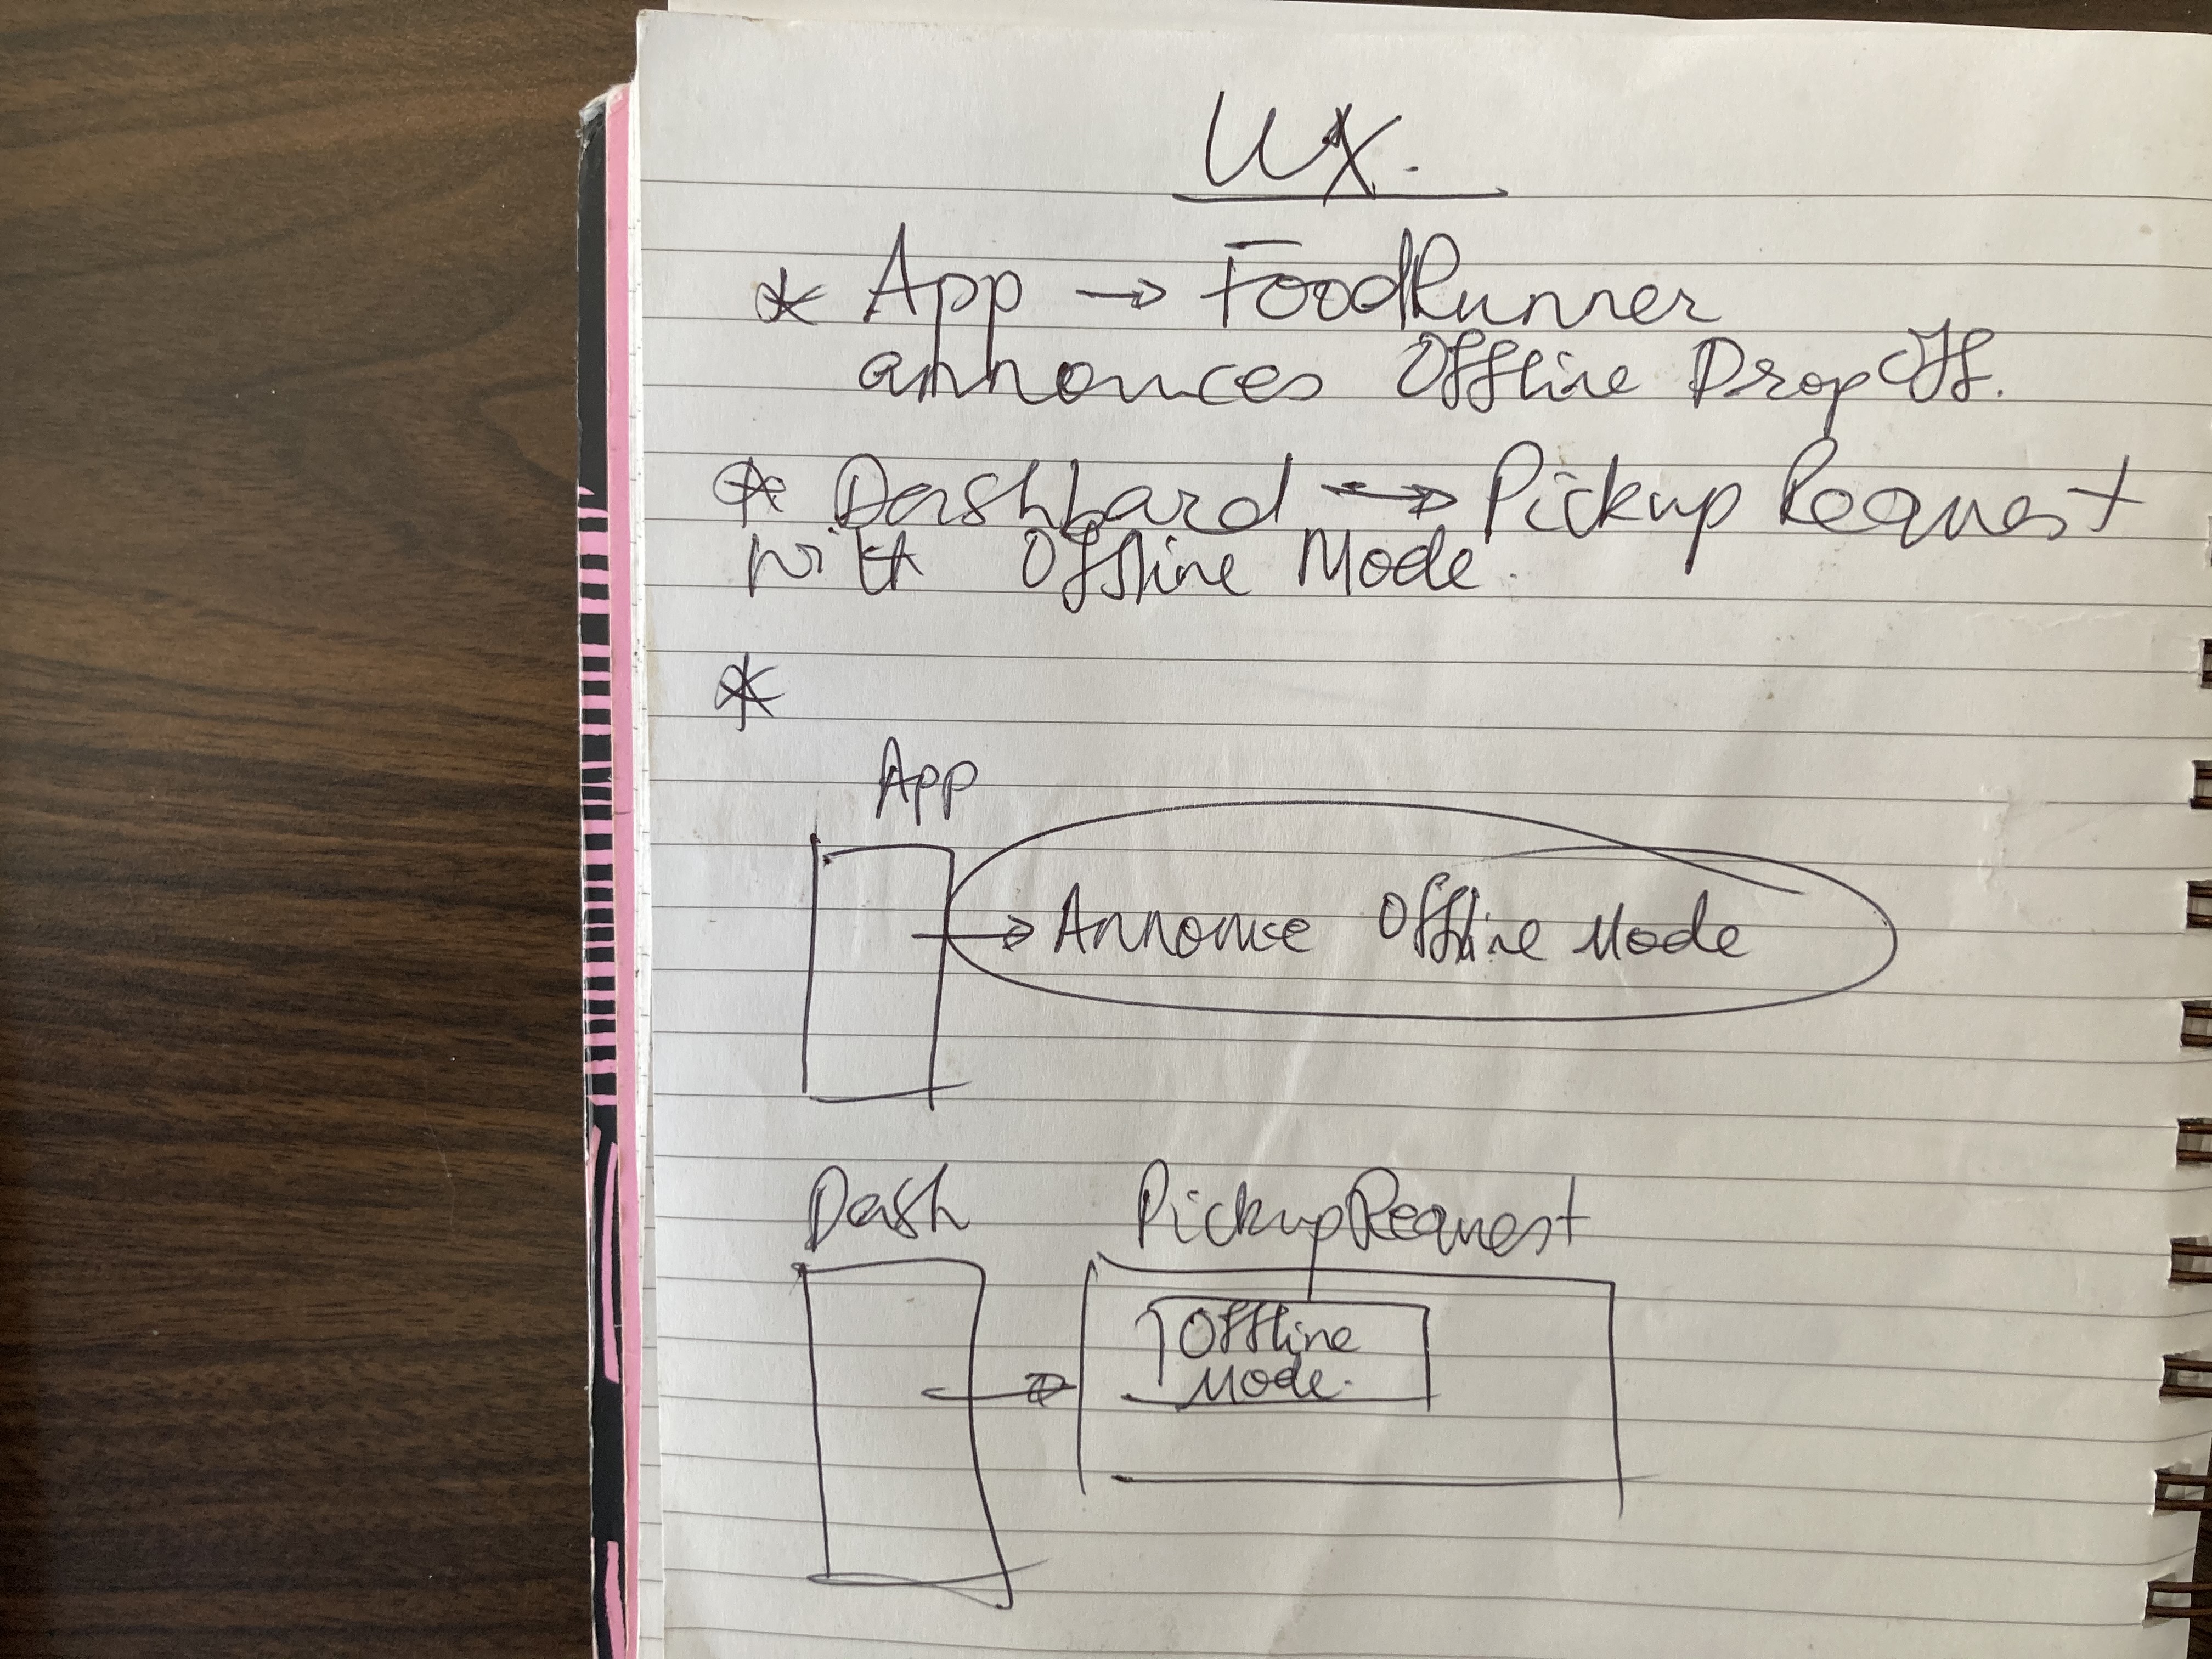 UX.
* App → FoodRunner
announces Offline Dropoff.
* Dashboard → Pickup Request
with Offline Mode.
*
App
→ Announce Offline Mode
Dash PickupRequest
→ Offline
Mode.